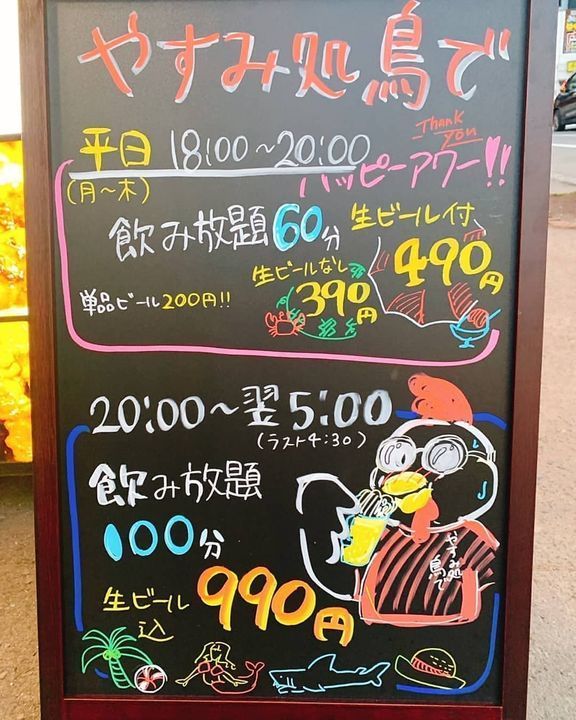 やすみ処 鳥で
Thank you
平日 18:00～20:00
(月～木)
ハッピーアワー!!
飲み放題60分
生ビール付、490円
生ビールなし390円
単品ビール200円!!
20:00～翌5:00
(ラスト4:30)
飲み放題
100分
生ビール込
990円
やすみ処
鳥で